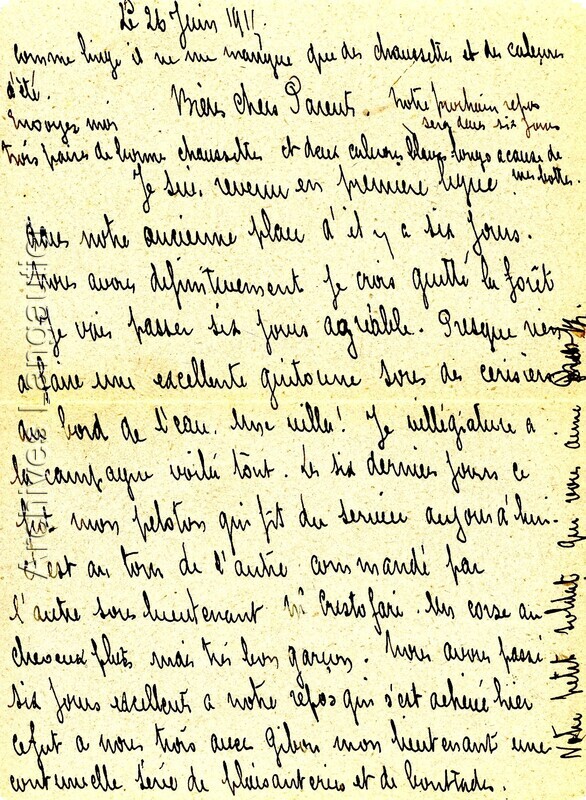 Le 26 Juin 191
comme linge il ne me manque que des chaussettes et des caleçons
d'été.
Biens chers Parents. Notre prochain repos
Envoyez moi sera dans six jours
trois paires de bonne chaussettes et deux caleçons blancs longs a cause de
mes bottes.
Je suis revenu en premiere ligne
dans notre ancienne place d'il y a six jours.
Nous avons definitivement je crois quitté la forêt
Je vais passer six jours agréable. Presque rien
a faire une excellente guitoune sous des cerisiers
au bord de l'eau. Une villa! Je villégiature a
la campagne voilà tout. Les six derniers jours ce
fut mon peloton qui fit du service aujourd'hui
c'est au tour de l'autre commandé par
l'autre sous lieutenant Mr Cristofari. Un corse au
cheveux plats mais très bon garçon. Nous avons passé
six jours excellents a notre repos qui s'est achevé hier
ce fut a nous trois avec Gibon mon lieutenant une
continuelle série de plaisanteries et de boutades.
Notre petit soldat qui vous aime
Archives Langaudie